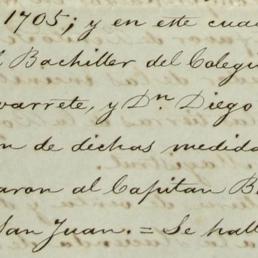 1705; y en este cua
l Bachiller del Colegi
varrete, y Dn. Diego
n de dichas medida
aron al Capitan B
San Juan. = Se hall